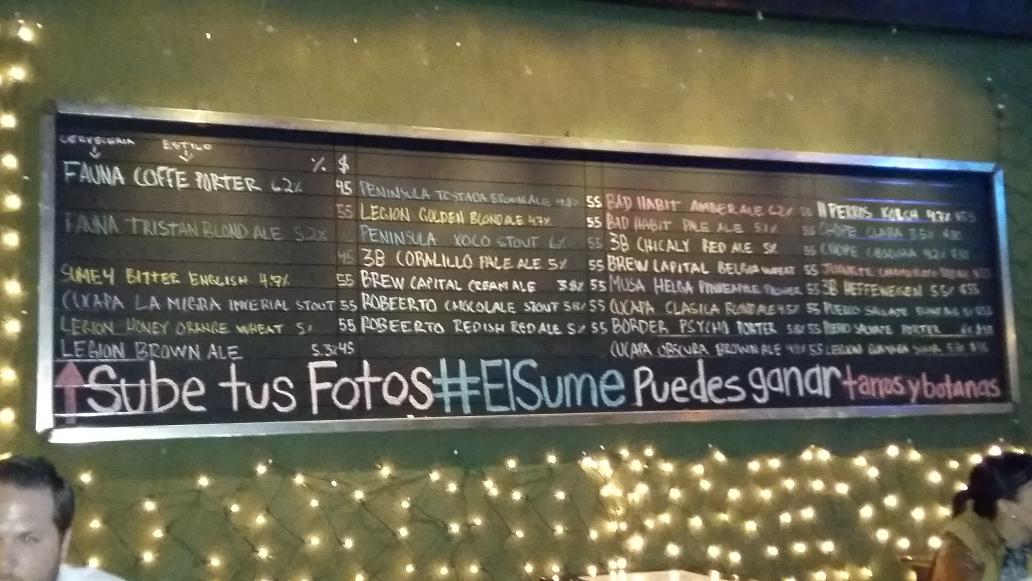 CERVECERIA ESTILO
% $
FAUNA COFFE PORTER 6.2% 45
FAUNA TRISTAN BLOND ALE 5.2% 55
45
SUMEY BITTER ENGLISH 4.9% 55
CUCAPA LA MIGRA IMPERIAL STOUT 55
LEGION HONEY ORANGE WHEAT 5% 55
LEGION BROWN ALE 5.3% 45
PENINSULA TOSTADA BROWN ALE 55
LEGION GOLDEN BLOND ALE 4.7%
PENINSULA XOCO STOUT 6% 55
3B CORALILLO PALE ALE 5% 55
BREW CAPITAL CREAM ALE 3.8% 55
ROBEERTO CHOCOLALE STOUT 5.8% 55
ROBEERTO REDISH RED ALE 5% 55
BAD HABIT AMBER ALE 6.2% 55
BAD HABIT PALE ALE 5.1% 55
3B CHICALY RED ALE 5% 55
BREW CAPITAL BELGIAN WHEAT 55
MUSA HELGA PINNEAPLE 55
CUCAPA CLASICA BLONDALE 4.5% 55
BORDER PSYCHO PORTER 5.8% 55
CUCAPA OBSCURA BROWN ALE 55
11 PERROS KOLCH 4.7% $55
CHOPE CLARA 3.5%
CHOPE OBSCURA
3B HEFFEWEIZEN 5.5% $55
PUEBLO SALVAJE
PUEBLO SALVAJE PORTER
LEGION
Sube tus Fotos #ElSume Puedes ganar tarros y botanas